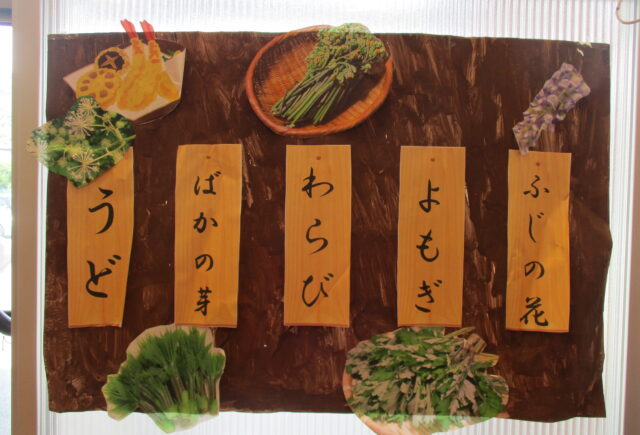 ふじの花
よもぎ
わらび
ばかの芽
うど